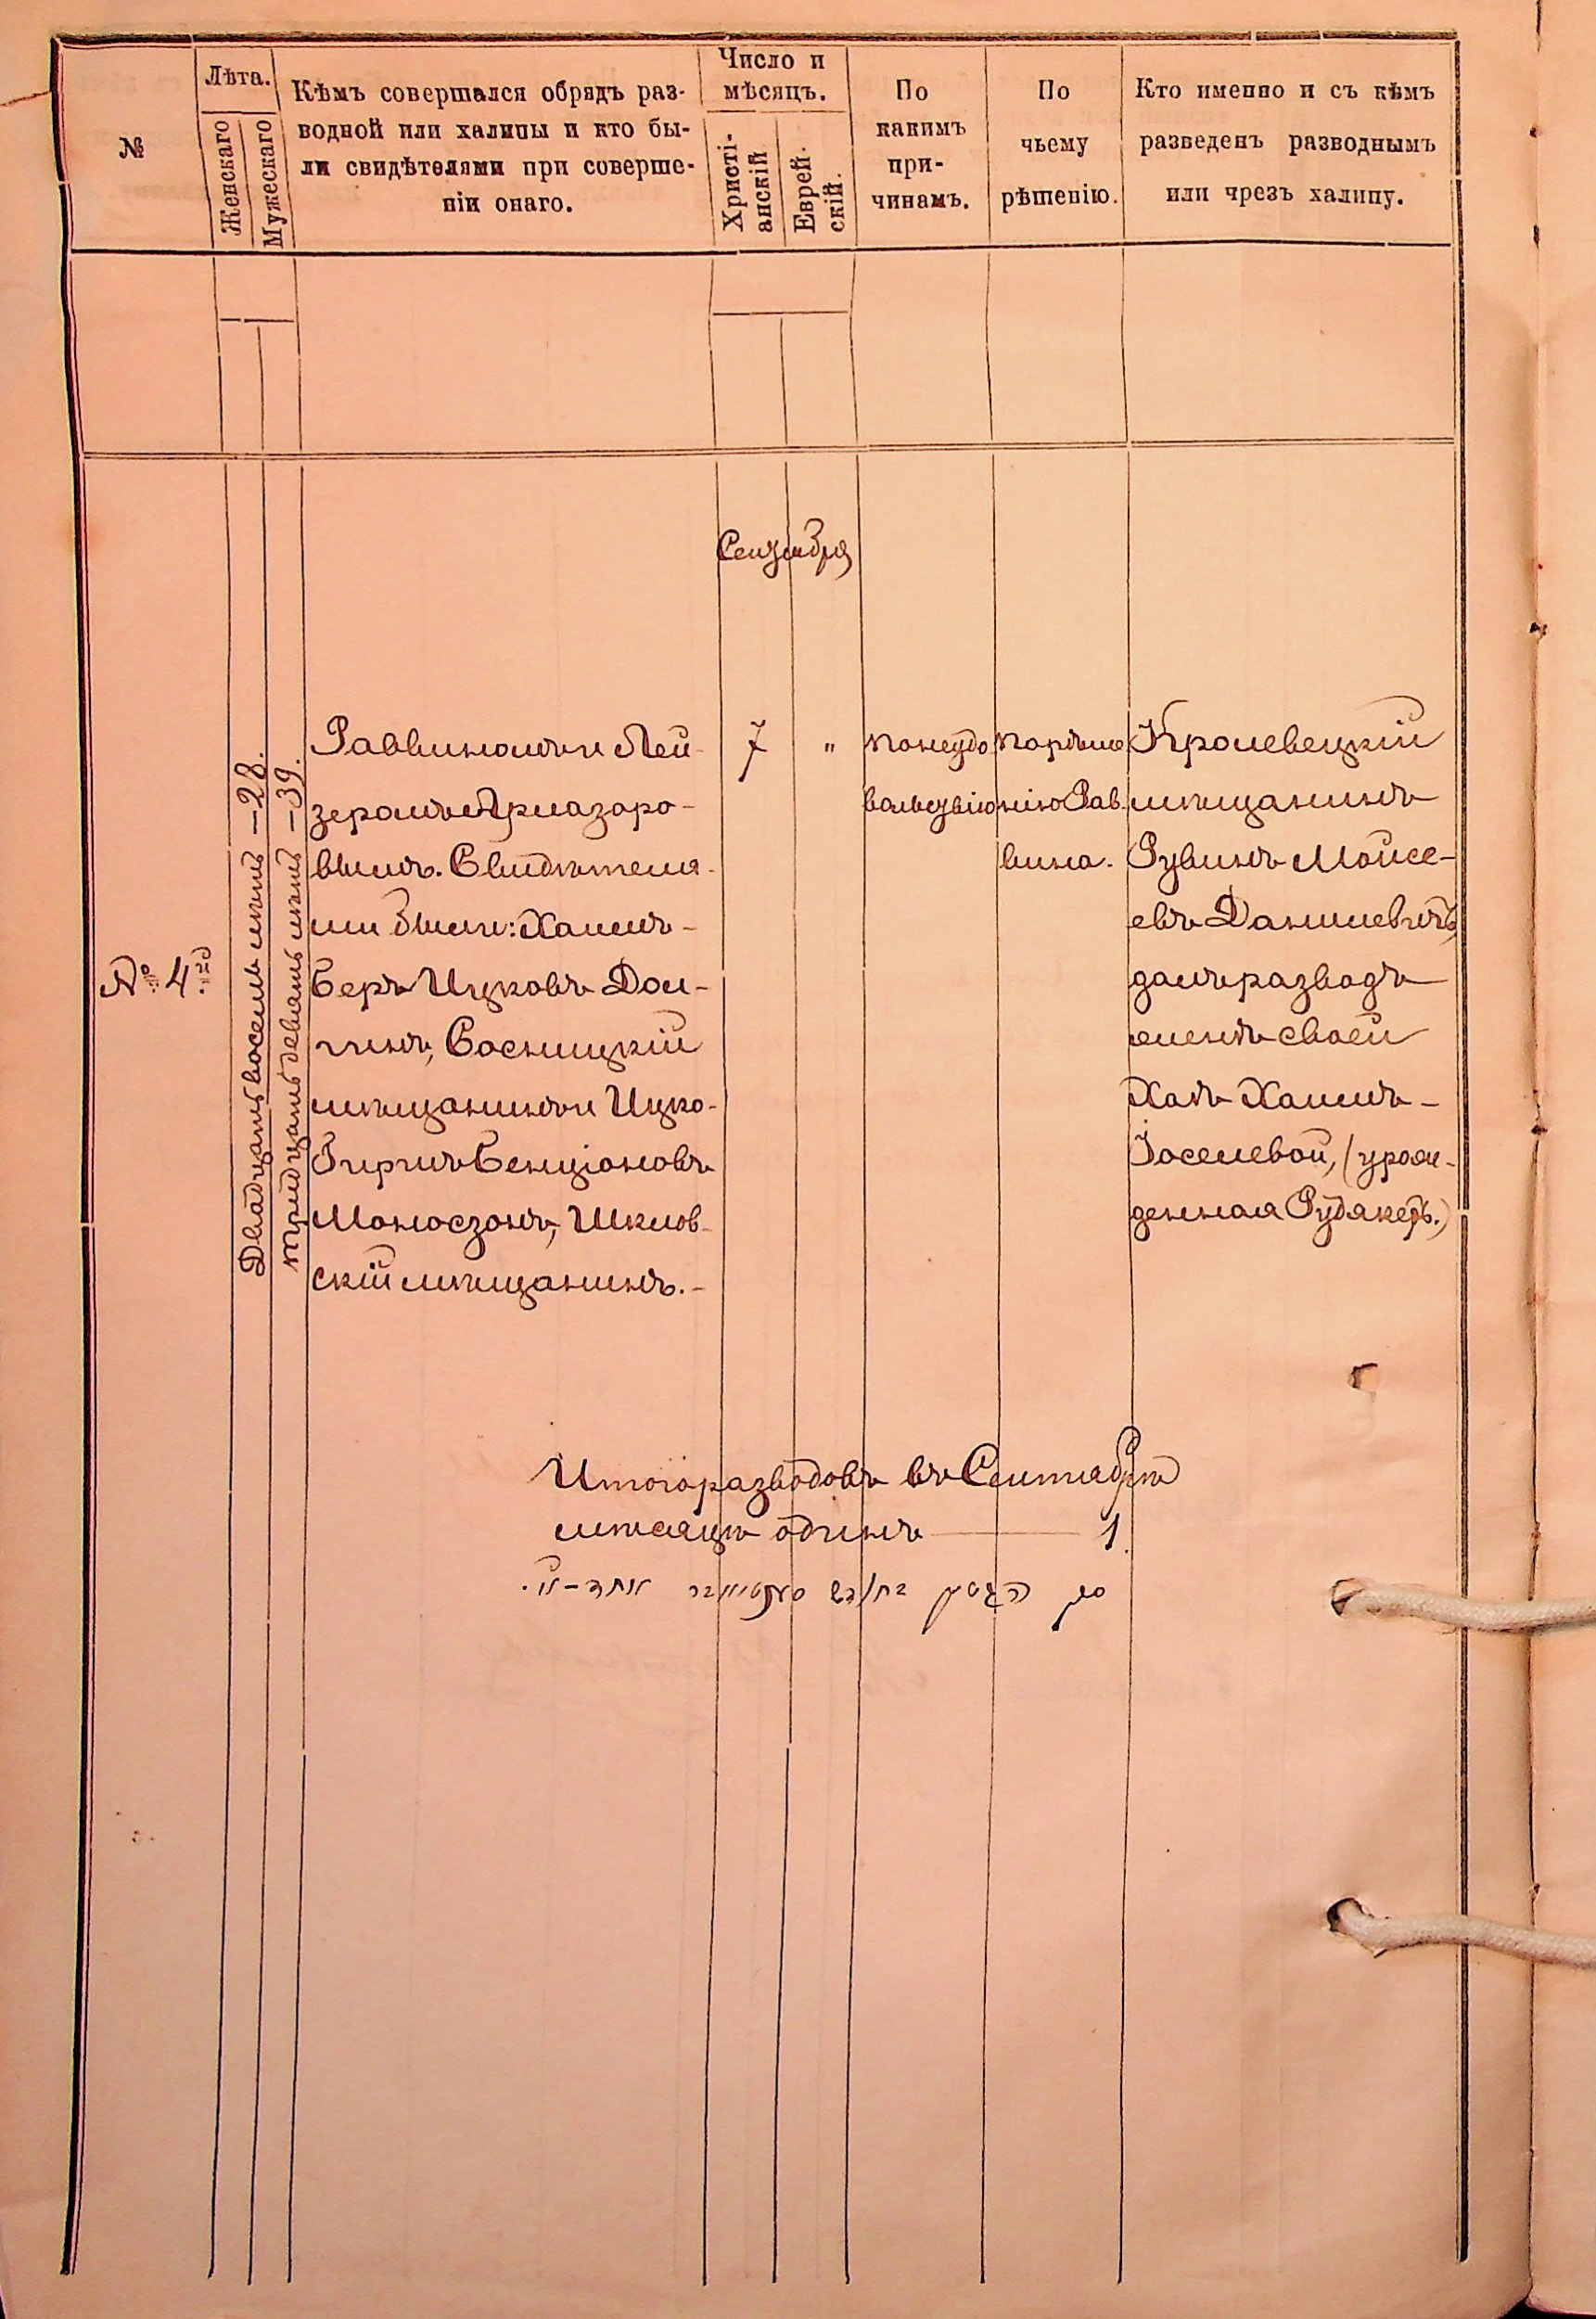 №
Лѣта.
Женскаго
Мужескаго
Кѣмъ совершался обрядъ раз-
водной или халицы и кто бы-
ли свидѣтелями при соверше-
ніи онаго.
Число и
мѣсяцъ.
Христі-
анскій
Еврей-
скій.
По
какимъ
при-
чинамъ.
По
чьему
рѣшенію.
Кто именно и съ кѣмъ
разведенъ разводнымъ
или чрезъ халицу.
Сентября
№ 4й
Двадцать восемь лѣтъ – 28.
Тридцать девять лѣтъ – 39.
Раввиномъ Лей-
зеромъ
вымъ. Свидѣтеля-
ми были: Хаимъ-
Беръ Ицковъ Дол-
гинъ, Сосницкій
мѣщанинъ и Ицко-
Гиршъ Бенціоновъ
Моносзонъ, Шклов-
скій мѣщанинъ.–
7
"
По неудо
вольствію
По рѣше
нію Рав-
вина.
Кролевецкій
мѣщанинъ
Рувинъ Мойсе-
евъ Данилевичъ,
далъ разводъ
женѣ своей
Хаѣ Хаимъ-
Іоселевой, (урож-
денная Рудякеръ.)
Итого разводовъ въ Сентябрѣ
мѣсяцѣ одинъ — 1.